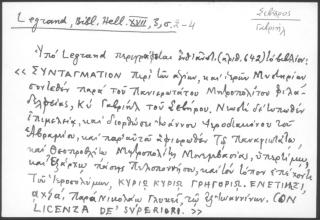 Σεβῆρος
Γαβριήλ
Legrand, Bibl. Hell. XVII, 3, σ. 2-4
Ὑπὸ Legrand περιγράφεται (ἀριθ. 642) τὸ βιβλίον:
« ΣΥΝΤΑΓΜΑΤΙΟΝ περὶ τῶν ἁγίων, καὶ ἱερῶν Μυστηρίων
συντεθὲν παρὰ τοῦ Πανιερωτάτου Μητροπολίτου Φιλα-
δελφείας, Κυ Γαβριὴλ τοῦ Σεβήρου, Νεωστὶ δὲ τυπωθὲν
ἐπιμελείᾳ, καὶ διορθώσει Ἰωάννου Ἱεροδιακόνου τοῦ
Ἀβραμίου, καὶ παρ' αὐτοῦ ἀφιερωθὲν Τῷ Παναγιωτάτῳ,
καὶ Θεοπροβλήτῳ Μητροπολίτῃ Μονεμβασίας, ὑπερτίμῳ,
καὶ Ἐξάρχῳ πάσης Πελοποννήσου, καὶ τὸν τόπον ἐπέχοντι
τοῦ Ἱεροσολύμων, ΚΥΡΙΩ ΚΥΡΙΩ ΓΡΗΓΟΡΙΩ. ΕΝΕΤΙΗΣΙ,
αχϟα, παρὰ Νικολάῳ Γλυκεῖ, τῷ ἐξ Ἰωαννίνων. CON
LICENZA DE' SUPERIORI. »